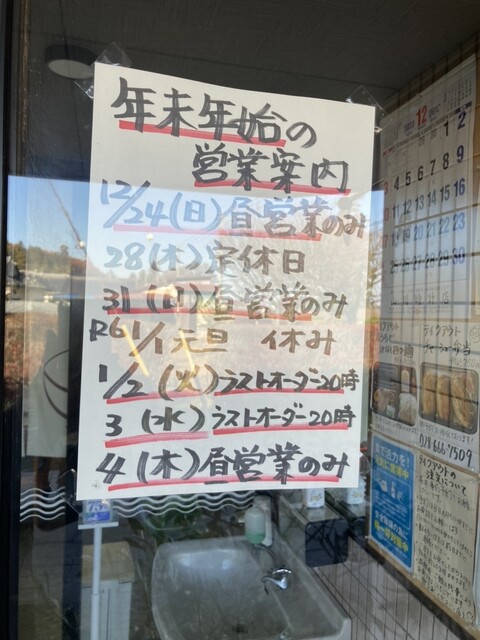 年末年始の
営業案内
12/24(日)昼営業のみ
28(木)定休日
31(日)昼営業のみ
R6 1/1元旦 休み
1/2(火)ラストオーダー20時
3(水)ラストオーダー20時
4(木)昼営業のみ
12
1 2
4 5 6 7 8 9
11 12 13 14 15 16
18 19 20 21 22 23
25 26 27 28 29 30
テイクアウト
チャーシュー弁当
028-666-7509
テイクアウトの